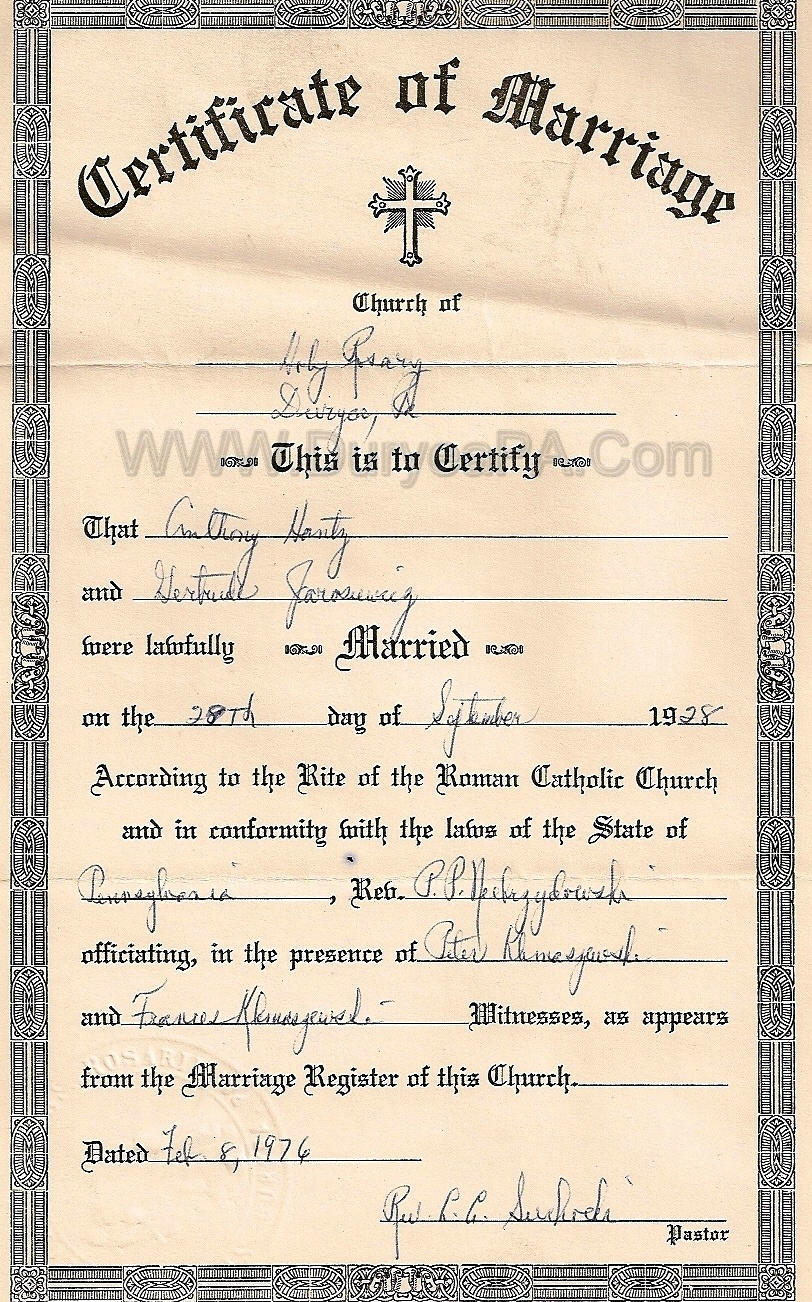 Certificate of Marriage
Church of
Holy Rosary
Duryea, Pa
WWW.DuryeaPA.Com
This is to Certify
That Anthony Hantz
and Gertrude Jarosiewicz
were lawfully Married
on the 28th day of September 1928
According to the Rite of the Roman Catholic Church
and in conformity with the laws of the State of
Pennsylvania, Rev. P. P.
officiating, in the presence of Peter Klimaszewski
and Frances Klimaszewski Witnesses, as appears
from the Marriage Register of this Church.
Dated Feb. 8, 1976
Rev.
Pastor